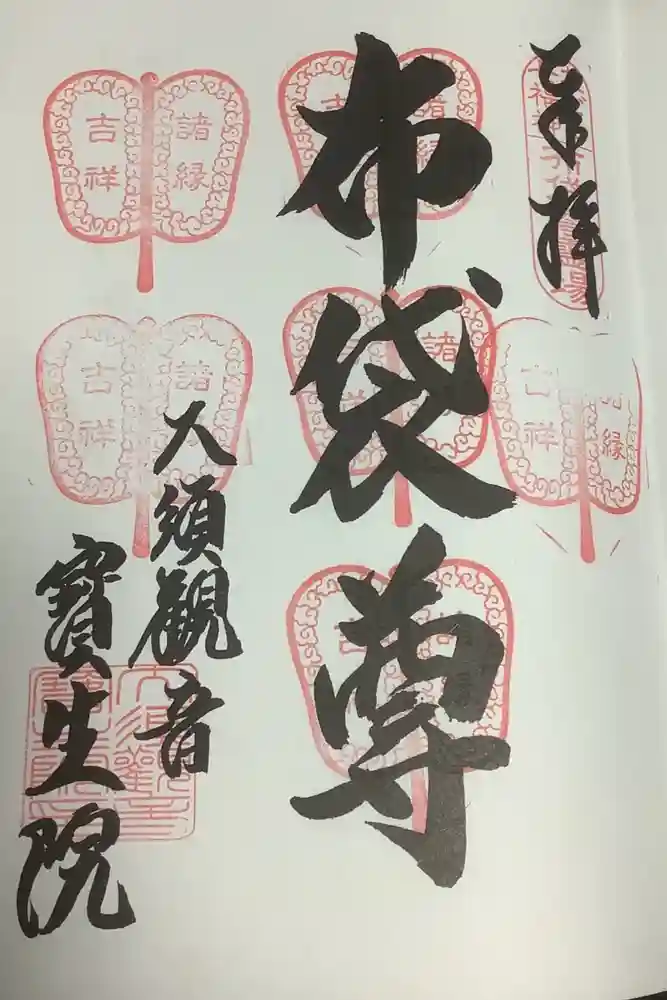 奉拝
布袋尊
大須観音
寳生院
諸縁
吉祥
諸縁
吉祥
諸
吉祥
縁
吉祥
諸